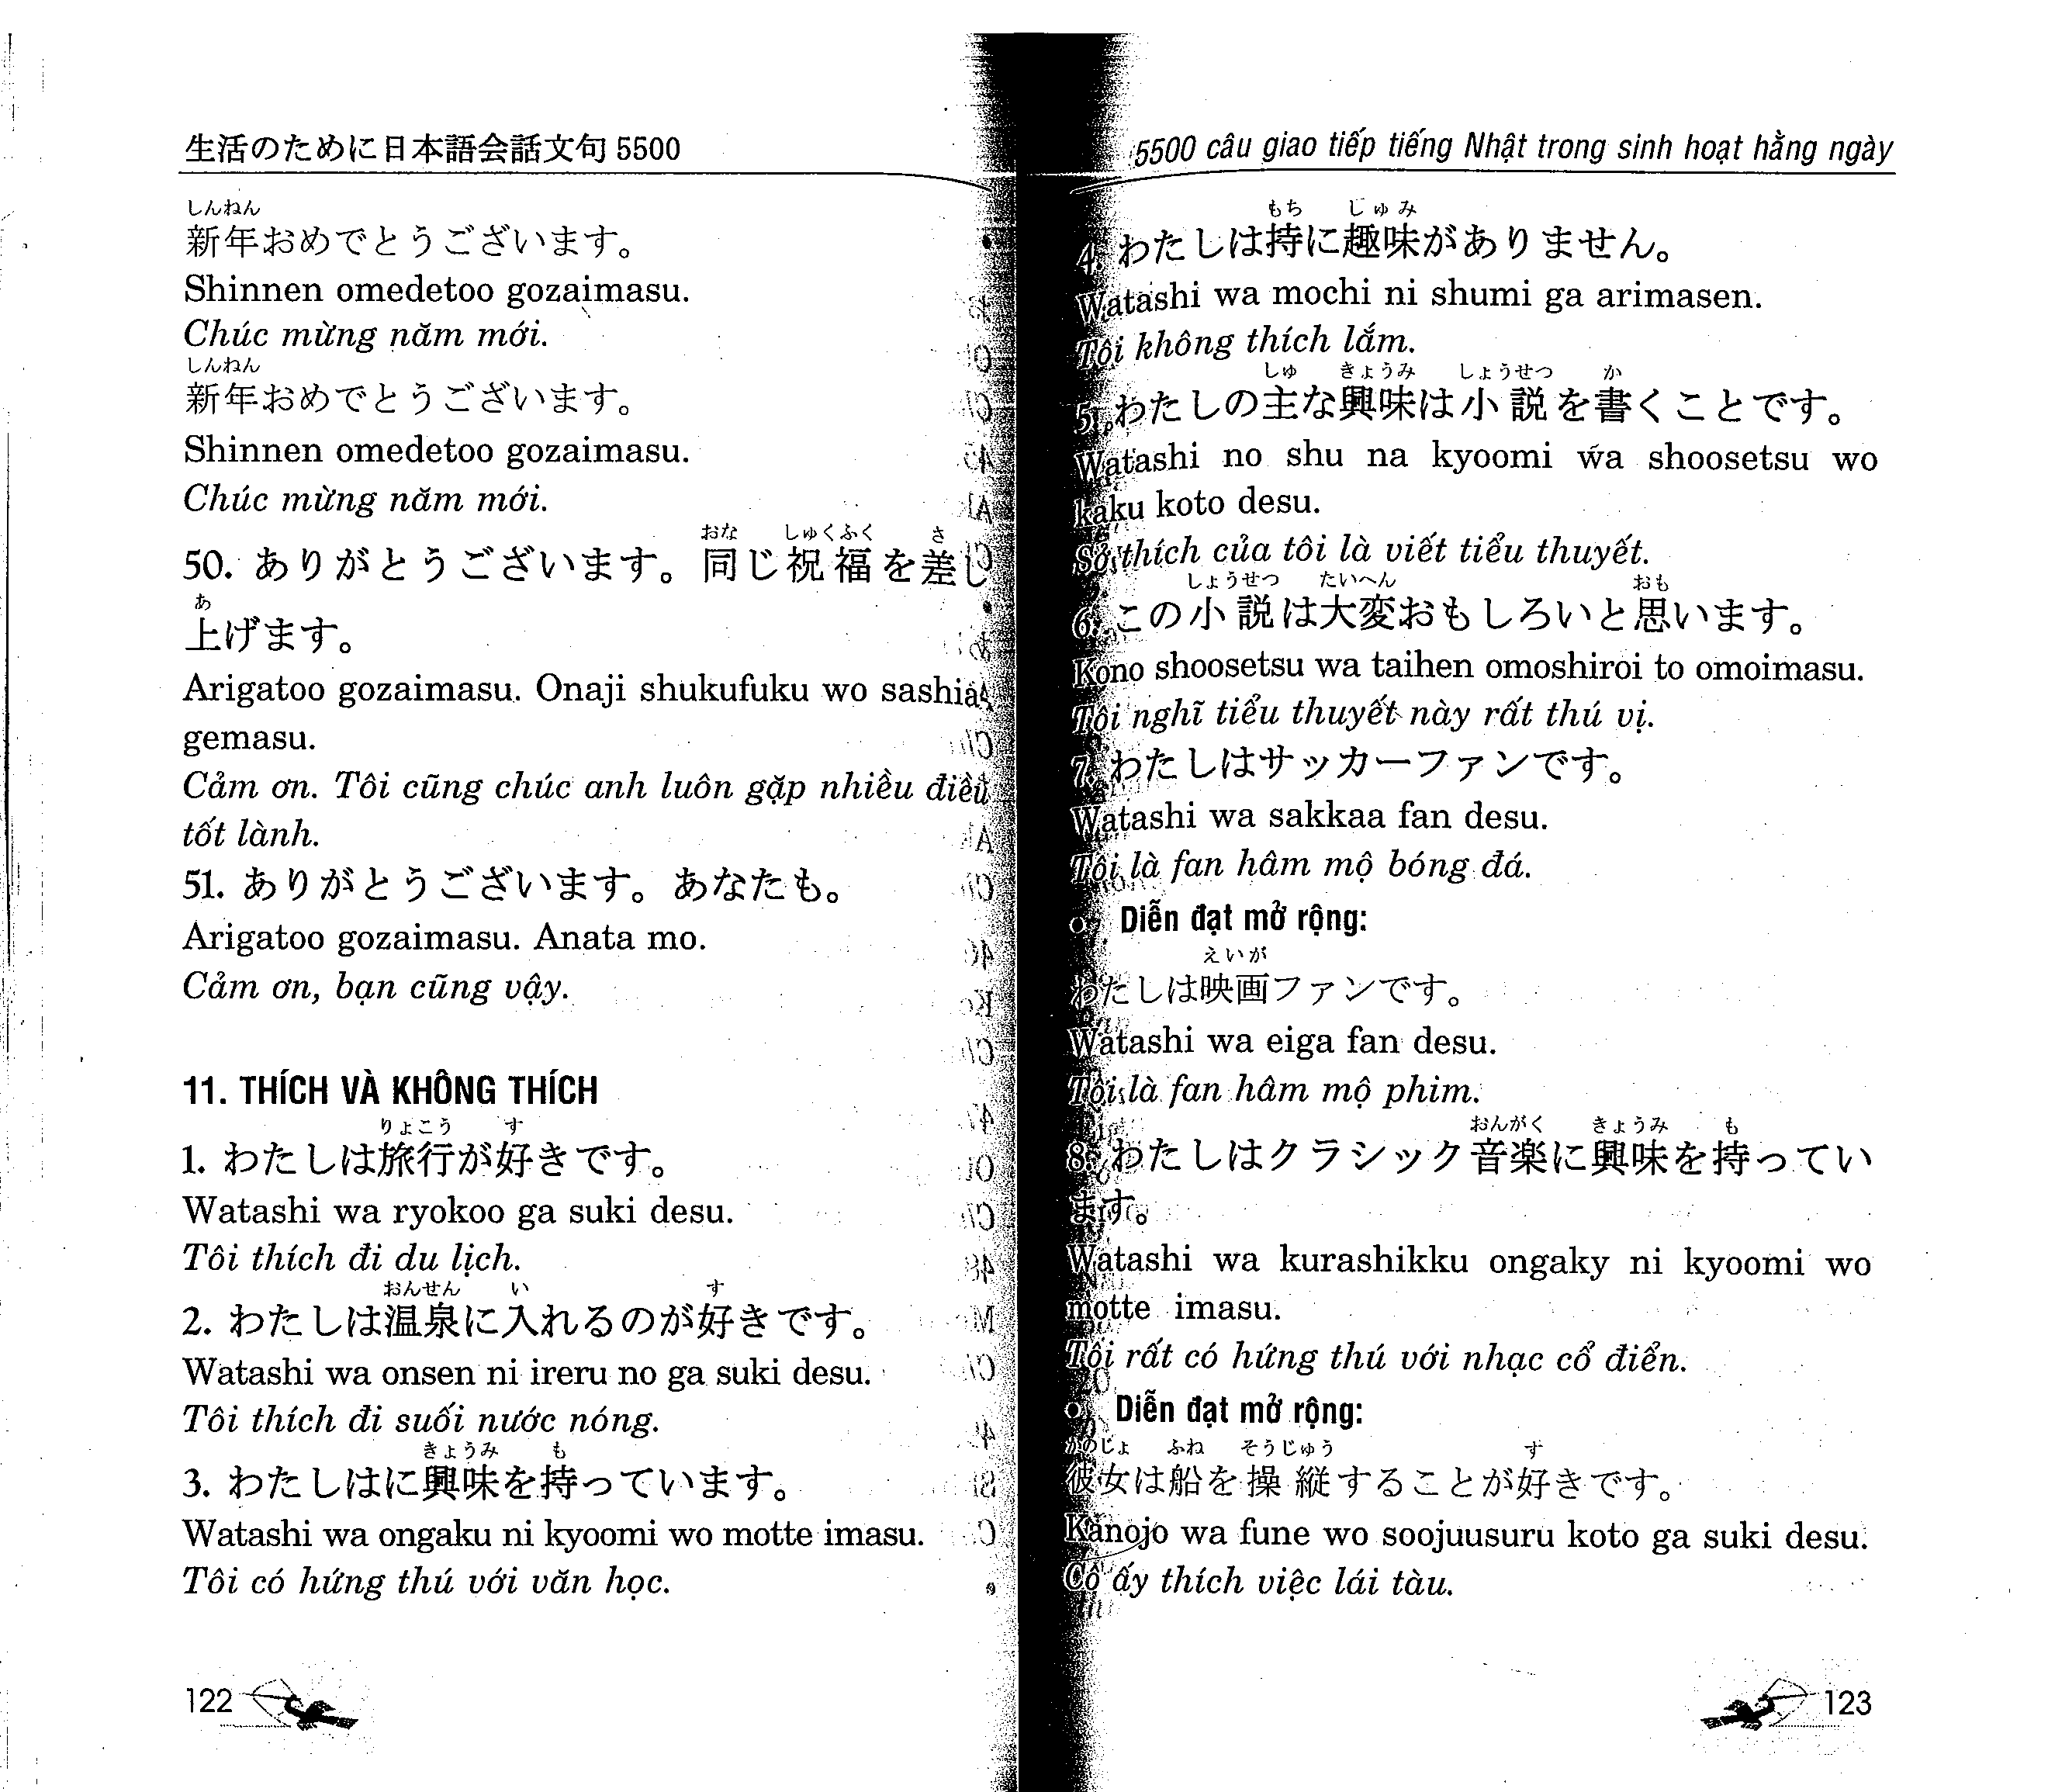 生活のために日本語会話文句 5500
しんねん
新年おめでとうございます。
Shinnen omedetoo gozaimasu.
Chúc mừng năm mới.
しんねん
新年おめでとうございます。
Shinnen omedetoo gozaimasu.
Chúc mừng năm mới.
おな しゅくふく さ
50. ありがとうございます。同じ祝福を差し
あ
上げます。
Arigatoo gozaimasu. Onaji shukufuku wo sashia
gemasu.
Cảm ơn. Tôi cũng chúc anh luôn gặp nhiều điều
tốt lành.
51. ありがとうございます。あなたも。
Arigatoo gozaimasu. Anata mo.
Cảm ơn, bạn cũng vậy.
11. THÍCH VÀ KHÔNG THÍCH
りょこう す
1. わたしは旅行が好きです。
Watashi wa ryokoo ga suki desu.
Tôi thích đi du lịch.
おんせん い す
2. わたしは温泉に入れるのが好きです。
Watashi wa onsen ni ireru no ga suki desu.
Tôi thích đi suối nước nóng.
きょうみ も
3. わたしはに興味を持っています。
Watashi wa ongaku ni kyoomi wo motte imasu.
Tôi có hứng thú với văn học.
122
5500 câu giao tiếp tiếng Nhật trong sinh hoạt hằng ngày
もち じゅみ
4. わたしは持に趣味がありません。
Watashi wa mochi ni shumi ga arimasen.
Tôi không thích lắm.
しゅ きょうみ しょうせつ か
5. わたしの主な興味は小説を書くことです。
Watashi no shu na kyoomi wa shoosetsu wo
kaku koto desu.
Sở thích của tôi là viết tiểu thuyết.
しょうせつ たいへん おも
6. この小説は大変おもしろいと思います。
Kono shoosetsu wa taihen omoshiroi to omoimasu.
Tôi nghĩ tiểu thuyết này rất thú vị.
7. わたしはサッカーファンです。
Watashi wa sakkaa fan desu.
Tôi là fan hâm mộ bóng đá.
Diễn đạt mở rộng:
えいが
わたしは映画ファンです。
Watashi wa eiga fan desu.
Tôi là fan hâm mộ phim.
おんがく きょうみ も
8. わたしはクラシック音楽に興味を持ってい
ます。
Watashi wa kurashikku ongaky ni kyoomi wo
motte imasu.
Tôi rất có hứng thú với nhạc cổ điển.
Diễn đạt mở rộng:
かのじょ ふね そうじゅう す
彼女は船を操縦することが好きです。
Kanojo wa fune wo soojuusuru koto ga suki desu.
Cô ấy thích việc lái tàu.
123